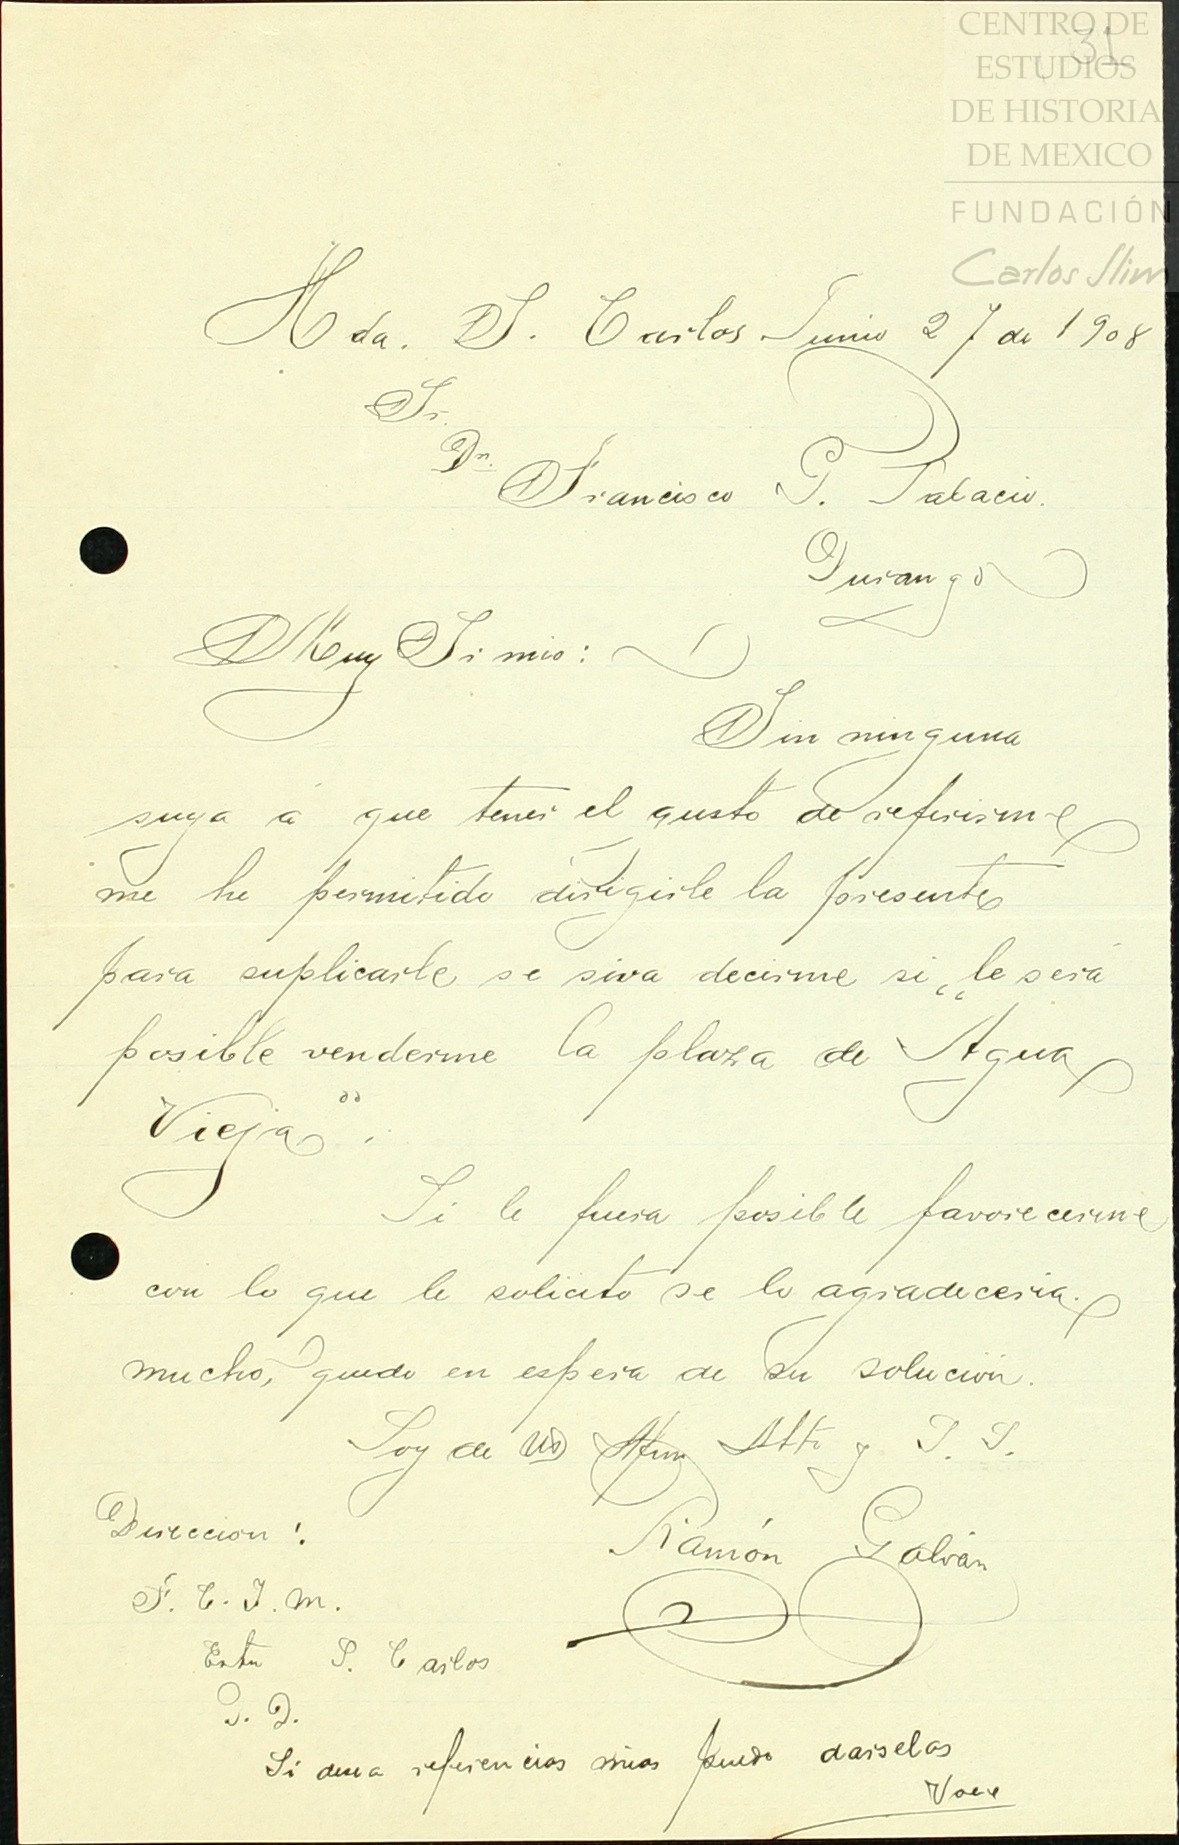 CENTRO DE
ESTUDIOS
DE HISTORIA
DE MEXICO
FUNDACIÓN
Carlos Slim
31
Hda. S. Carlos Junio 27 de 1908
Sr.
Dn.
Francisco G. Palacio.
Durango
Muy Sr mio:
Sin ninguna
suya á que tener el gusto de referirme
me he permitido dirigirle la presente
para suplicarle se siva decirme si „le será
posible venderme la plaza de Agua
Vieja".
Si le fuera posible favorecerme
con lo que le solicito se lo agradeceria.
mucho, quedo en espera de su solución.
Soy de Ud Afmo Atto y S. S.
Ramón Galván
Direccion:
F. C. I. M.
Estn S. Carlos
P. D.
Si desea referencias mias puedo darselas
Vale